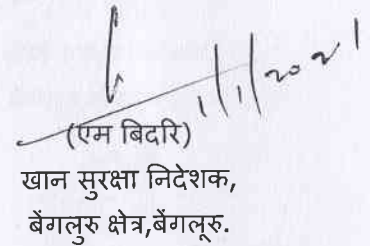 1/1/2021
(एम बिदरि)
खान सुरक्षा निदेशक,
बेंगलुरु क्षेत्र,बेंगलूरु.